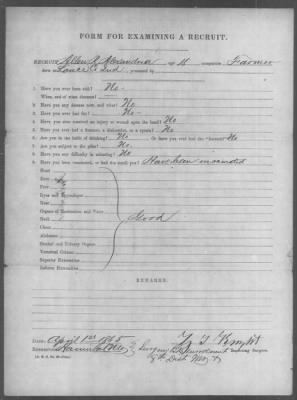 FORM FOR EXAMINING A RECRUIT.
RECRUIT Allen R Alexander age 18 occupation Farmer
born Co Ind, presented by
1. Have you ever been sick? No
When, and of what disease?
2. Have you any disease now, and what? No
3. Have you ever had fits? No
4. Have you ever received an injury or wound upon the head? No
5. Have you ever had a fracture, a dislocation, or a sprain? No
6. Are you in the habit of drinking? No Or have you ever had the "horrors?" No
7. Are you subject to the piles? No
8. Have you any difficulty in urinating? No
9. Have you been vaccinated, or had the small pox? Have been vaccinated
Head
Eyes
Ears
Nose
Organs of
Neck
Chest
Abdomen
Genital and Urinary Organs
Vertebral Column
Superior Extremities
Inferior Extremities
Good
REMARKS.
DATE: April 1st 1865
RENDEZVOUS Examining Surgeon.
Surgeon
Dist